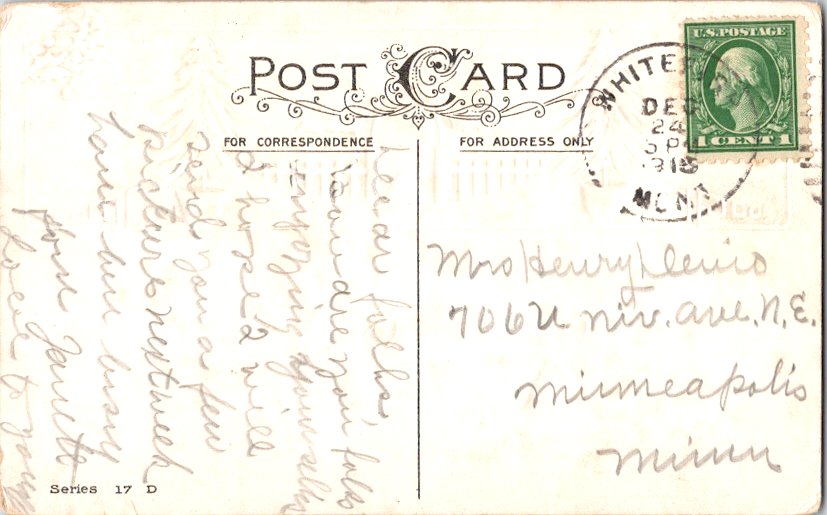 POST CARD
FOR CORRESPONDENCE
FOR ADDRESS ONLY
U.S. POSTAGE
1 CENT 1
WHITEF
DEC
24
5 P
1915
MONT
Dear folks,
How are you folks
enjoying yourselfs
I hope I will
send you a few
pictures next week
have bin busy
from
Love to you
Mrs Henry
706 Univ. Ave. N.E.
Minneapolis
Minn
Series 17 D